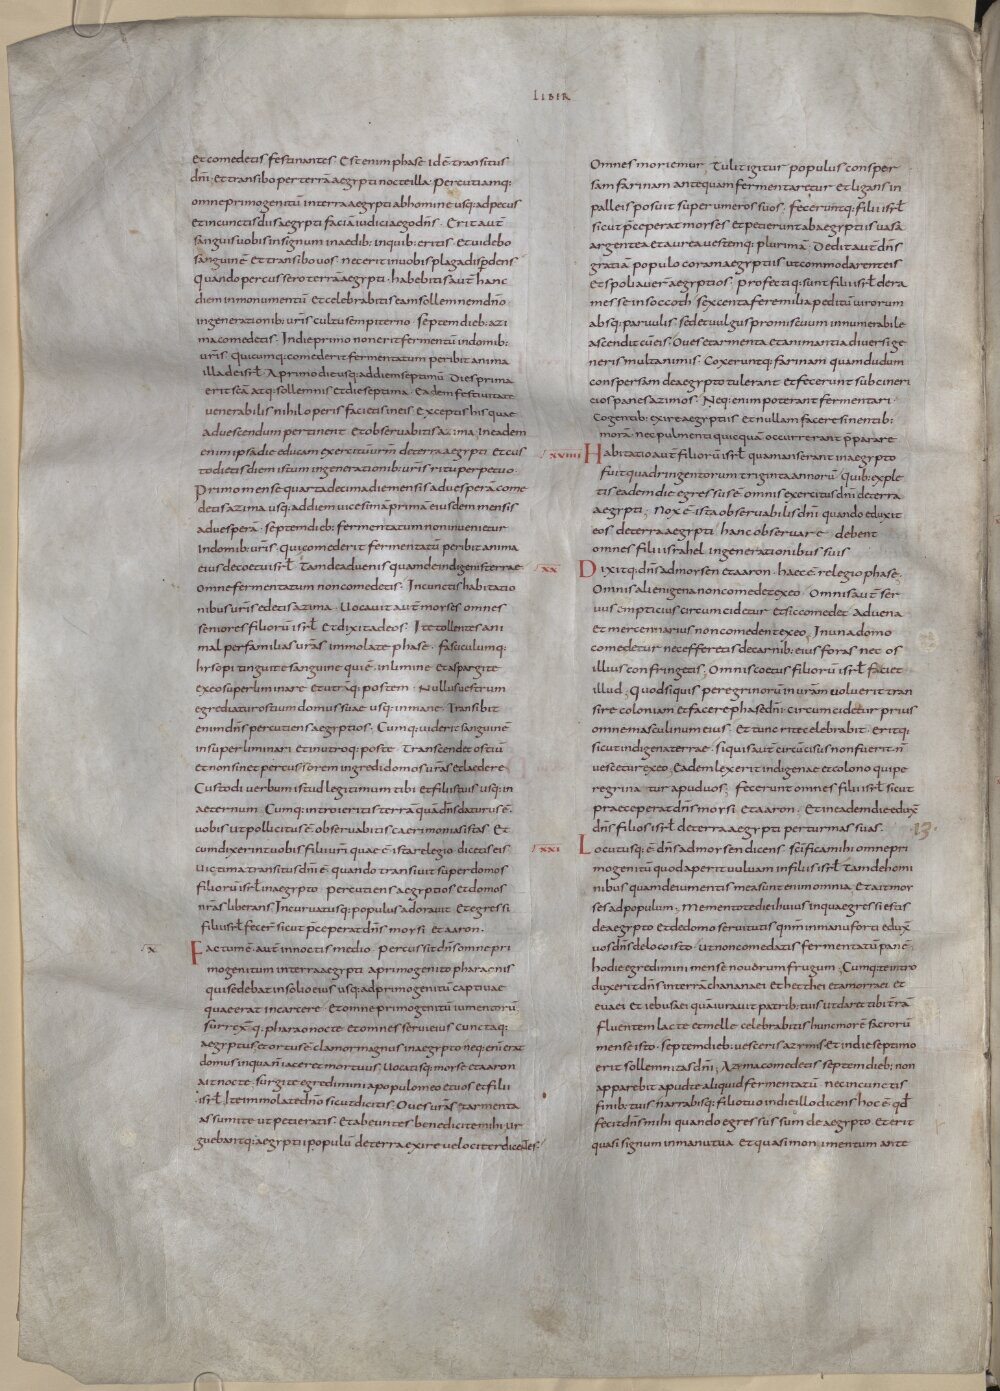 LIBER
et comedetis festinantes. Est enim phase id ē transitus
dn̄i. et transibo per terrā aegypti nocte illa. Percutiamq:
omne primogenitū in terra aegypti ab homine usq: ad pecus
et in cunctis diis aegypti faciā iudicia ego dn̄s. Erit aut̄
sanguis uobis in signum in aedib: in quib: eritis. Et uidebo
sanguinē et transibo uos. nec erit in uobis plaga disperdens
Quando percussero terrā aegypti. habebitis aut̄ hanc
diem in monumentū et celebrabitis eam sollemnem dn̄o
in generationib: ur̄is cultu sempiterno. septem dieb: azi
ma comedetis. In die primo non erit fermentū in domib:
ur̄is. quicumq: comederit fermentatum peribit anima
illa de isrł. A primo die usq: ad diem septimū. Dies prima
erit scā atq: sollemnis et dies septima. Eadem festiuitate
uenerabilis nihil operis facietis in eis. Exceptis his quae
ad uescendum pertinent. Et obseruabitis azima. in eadem
enim ipsa die educam exercitū ur̄m de terra aegypti. et cus
todietis diem istum in generationib: ur̄is ritu perpetuo.
Primo mense quarta decima die mensis ad uesperā come
detis azima usq: ad diem uicesima primā eiusdem mensis
ad uesperā. septem dieb: fermentatum non inuenietur
in domib: ur̄is. Qui comederit fermentatū peribit anima
eius de coetu isrł. Tam de aduenis quam de indigenis terrae
Omne fermentatum non comedetis. In cunctis habitatio
nibus ur̄is edetis azima. Uocauit aut̄ moyses omnes
seniores filiorū isrł. Et dixit ad eos. Ite tollentes ani
mal per familias ur̄as immolate phase. fasciculumq:
hysopi tinguite sanguine qui ē in limine et aspargite
ex eo super liminare et utrāq: postem. Nullus uestrum
egrediatur ostium domus suae usq: in mane. Transibit
enim dn̄s percutiens aegyptios. Cumq: uiderit sanguinē
in super liminari et in utroq: poste. Transcendet ostiū
et non sinet percussorem ingredi domos ur̄as et laedere
Custodi uerbum istud legitimum tibi et filiis tuis usq: in
aeternum. Cumq: introieritis terrā quā dn̄s daturus ē
uobis ut pollicitus ē. obseruabitis caerimonias istas. Et
cum dixerint uobis filii ur̄i quae ē ista relegio dicetis eis.
Uictima transitus dn̄i ē. quando transiuit super domos
filiorū isrł in aegypto. percutiens aegyptios et domos
nr̄as liberans. Incuruatusq: populus adorauit. Et egressi
filii isrł fecer̄ sicut p̄ceperat dn̄s moysi et aaron.
x
Factum ē aut̄ in noctis medio. Percussit dn̄s omne pri
mogenitum in terra aegypti. a primogenito pharaonis
qui sedebat in solio eius usq: ad primogenitū captiuae
quae erat in carcere. Et omne primogenitū iumentorū
surrex̄q: pharao nocte et omnes serui eius cunctaq:
aegyptus. et ortus ē clamor magnus in aegypto neq: eni erat
domus in qua n̄ iaceret mortuus. Uocatisq: moyse et aaron
ait nocte. surgite egredimini a populo meo et uos et filii
isrł. Ite immolate dn̄o sicut dicitis. Oues ur̄as et armenta
assumite ut petieratis. Et abeuntes benedicite mihi. ur
guebantq: aegyptii populū de terra exire uelociter dicentes.
Omnes moriemur. Tulit igitur populus consper
sam farinam antequam fermentaretur. Et ligans in
palleis posuit super umeros suos. feceruntq: filii isrł
sicut p̄ceperat moyses. et petierunt ab aegyptiis uasa
argentea et aurea uestemq: plurimā. Dedit aut̄ dn̄s
gratiā populo coram aegyptiis ut commodarent eis
Et spoliauer̄ aegyptios. profectiq: sunt filii isrł de ra
messe in soccoth. sexcenta fere milia peditū uirorum
absq: paruulis. sed et uulgus promiscuum innumerabile
ascendit cū eis. Oues et armenta et animantia diuersi ge
neris multa nimis. Coxeruntq: farinam quam dudum
conspersam de aegypto tulerant. Et fecerunt subcineri
cios panes azimos. Neq: enim poterant fermentari.
Cogentib: exire aegyptiis. et nullam facere sinentib:
morā. nec pulmenti quicquā occurrerant p̄parare
xviiii
Habitatio aut̄ filiorū isrł qua manserant in aegypto
fuit quadringentorum triginta annorū. Quib: exple
tis eadem die egressus ē omnis exercitus dn̄i de terra
aegypti. Nox ē ista obseruabilis dn̄i quando eduxit
eos de terra aegypti. hanc obseruare debent
omnes filii israhel in generationibus suis
xx
Dixitq: dn̄s ad moysen et aaron. haec ē relegio phase.
Omnis alienigena non comedet ex eo. Omnis aut̄ ser
uus empticius circumcidetur et sic comedet. Aduena
et mercennarius non comedent ex eo. In una domo
comedetur nec efferetis de carnib: eius foras. nec os
illius confringetis. Omnis coetus filiorū isrł faciet
illud. Quod si quis peregrinorū in ur̄am uoluerit tran
sire coloniam et facere phase dn̄i. circumcidetur prius
omne masculinum eius. Et tunc rite celebrabit. eritq:
sicut indigena terrae. si quis aut̄ circūcisus non fuerit n̄
uescetur ex eo. Eadem lex erit indigenae et colono qui pe
regrinatur apud uos. fecerunt omnes filii isrł sicut
praeceperat dn̄s moysi et aaron. Et in eadem die eduxit
dn̄s filios isrł de terra aegypti per turmas suas.
13.
xxi
Locutusq: ē dn̄s ad moysen dicens. sc̄ifica mihi omne pri
mogenitū quod aperit uuluam in filiis isrł. Tam de homi
nibus quam de iumentis. mea sunt enim omnia. Et ait moy
ses ad populum. Mementote diei huius in qua egressi estis
de aegypto et de domo seruitutis. qn̄m in manu forti edux̄
uos dn̄s de loco isto. ut non comedatis fermentatū panē.
hodie egredimini mense nouorum frugum. Cumq: te intro
duxerit dn̄s in terrā chananaei et hetthei et amorraei et
euaei et iebusaei quā iurauit patrib: tuis ut daret tibi terrā
fluentem lacte et melle. celebrabitis hunc morē sacrorū
mense isto. septem dieb: uesceris azymis. Et in die septimo
erit sollemnitas dn̄i. Azyma comedetis septem dieb: non
apparebit apud te aliquid fermentatū. nec in cunctis
finib: tuis. narrabisq: filio tuo in die illo dicens. hoc ē qđ
fecit dn̄s mihi quando egressus sum de aegypto. Et erit
quasi signum in manu tua. Et quasi monimentum ante